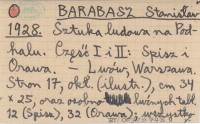 BARABASZ Stanisław
1928. Sztuka ludowa na Pod-
halu. Część I i II: Spisz i
Orawa. — Lwów, Warszawa.
Stron 17, okt. (ilustr.), cm 34
× 25, oraz osobno luźnych tabl.
12 (Spisz), 32 (Orawa), wszystko